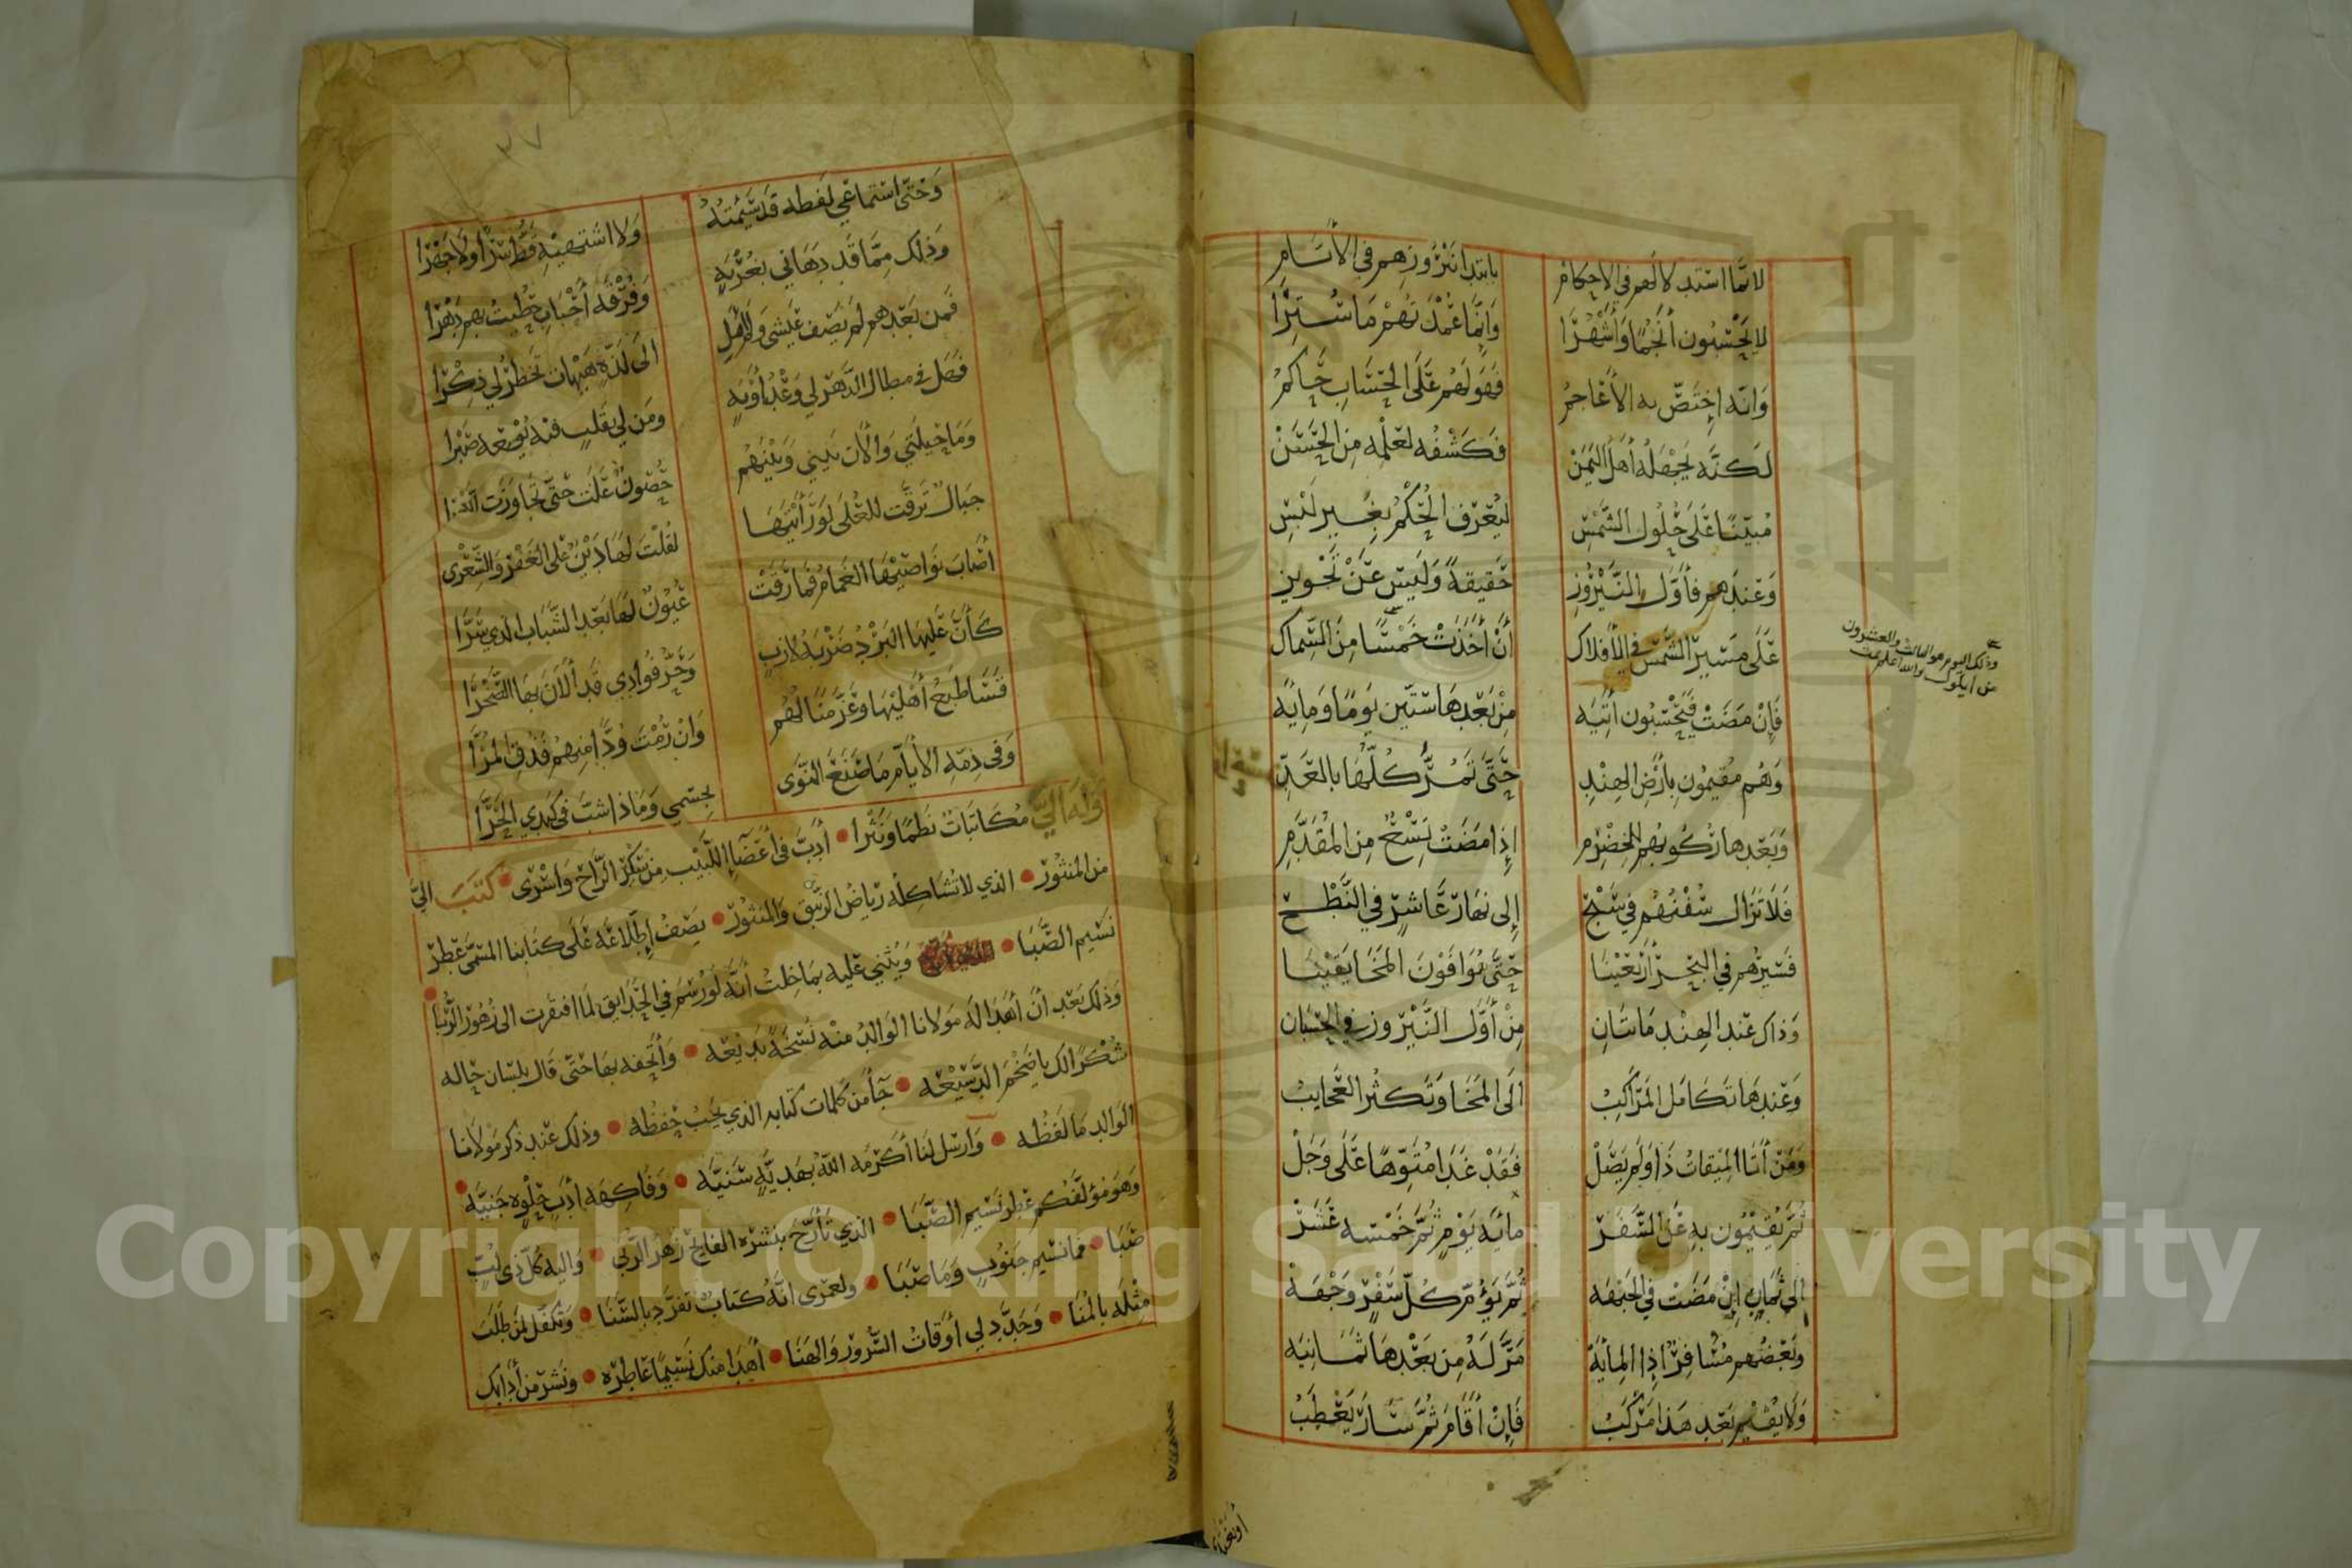 لانما استدلالهم في الاحكام بابتدا نيروزهم في الأسام
لا يحسبون أنجمًا وأشهرا وإنما عمدتهم ما سترا
وانه اختص به الأعاجم فهو لهم على الحساب حاكم
لكنه يجهله أهل اليمن فكشفه لعلمه من الحسن
مبينًا على حلول الشمس ليعرف الحكم بغير لبس
وعندهم فأول النيروز حقيقة وليس عن تجويز
على مسير الشمس في الأفلاك أن أخذت خمسًا من السماك
فإن مضت فيحسبون أتيه من بعدها ستين يومًا ومايه
وهم مقيمون بأرض الهند حتى تمر كلها بالعد
وبعدها ركوبهم الخضرم إذا مضت تسع من المقدم
فلا تزال سفنهم في سبح إلى نهار عاشر في النطح
فسيرهم في البحر أربعينا حتى يوافون المخا يقينا
وذاك عند الهند مأتان من أول النيروز في الحسبان
وعندها تكامل المراكب الى المخا وتكثر العجايب
ومن أتا الميقات ذا ولم يصل فقد غدا متوهًا على وجل
ثم يقيمون به عن السفر مائة يوم ثم خمسه عشر
إلى ثمان إن مضت في الجبهه ثم يؤم كل سفر وجهه
وبعضهم مسافر إذا المايه مر له من بعدها ثمانيه
ولا يقيم بعد هذا مركب فإن أقام ثم سار يعطب
وذلك اليوم هو الثالث والعشرون
من ايلول والله اعلم تمت
٢٧
وحتى استماعي لفظه قد سئمته ولا اشتهيه قط سرًا ولا جهرا
وذلك مما قد دهاني بغربة وفرقة أحباب حظيت بهم دهرا
فمن بعدهم لم يصف عيشي ولم أمل الى لذة هيهات تخطر لي ذكرا
فضل في مطال الدهر لي وعد أوبة ومن لي بقلب فيه يوسعه صبرا
وما حيلتي والآن بيني وبينهم حصون علت حتى تجاوزت
جبال ترقت للعلى لو رأيتها لقلت لها دين على الغفر والشعرى
أصاب نواصيها الغمام فما رقت عيون لها بعد الشباب الذي سرا
كأن عليها البرد ضربة لازب وحر فوادي قد ألان بها الصخرا
قسا طبع أهليها وعز منالهم وان رمت ودا منهم فذق المرا
وفي ذمة الأيام ما صنع النوى بجسمي وماذا شب في كبدي الحرا
وله الي مكاتبات نظمًا ونثرا أدب في أعضآ اللبيب من سكر الراح واسرى كتب الي
من المنثور الذي لا تشاكله رياض الربيق والمنثور يصف إطلاعه على كتابنا المسمى عطر
نسيم الصبا ويثني عليه بما خلت أنه لو رسم في الحدايق لما افتقرت الى زهور الربا
وذلك بعد أن أهدا له مولانا الوالد منه نسخة بديعه وأتحفه بها حتى قال بلسان حاله
شكرًا لك يا ضخم الدسيعه جآ من كلمات كتابه الذي يجب حفظه وذلك عند ذكر مولانا
الوالد ما لفظه وارسل لنا أكرمه الله بهدية سنيه وفاكهة أدب حلوه جنيه
وهو مؤلفكم عطر نسيم الصبا الذي تأرج بنشره الفايح زهر الربى واليه كل ذي لب
صبا فما نسيم جنوب وما صبا ولعمري انه كتاب تفرد بالسنا وتكفل لمن طلب
مثله بالمنا وجدد لي أوقات السرور والهنا أهدا منك نسيمًا عاطره ونشر من أدابك
Copyright © King Saud University